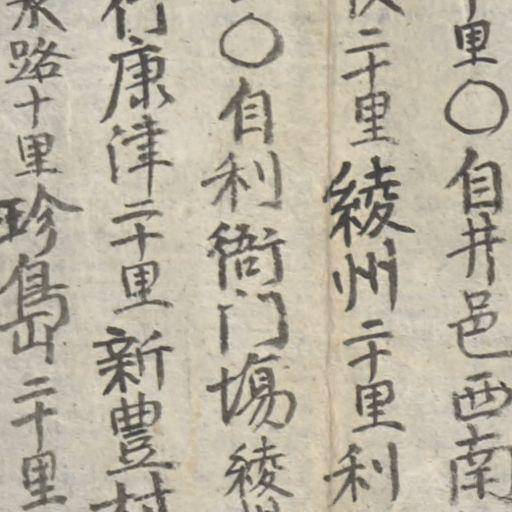 里○自井邑西南
二十里綾州二十里利
○自利衙门場綾
行康津二十里新豊村
水路十里珍島二十里